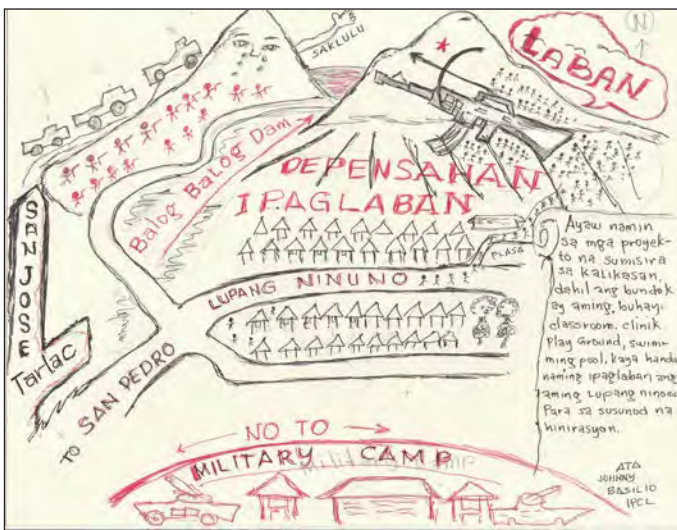 SAKLULU
N
LABAN
Balog Balog Dam
DEPENSAHAN
IPAGLABAN
SAN JOSE
Tarlac
PLASA
LUPANG NINUNO
TO SAN PEDRO
Ayaw namin
sa mga proyek-
to na sumisira
sa kalikasan,
dahil ang bundok
ay aming, buhay,
classroom. clinik
Play Ground, swim-
ming pool, kaya handa
naming ipaglaban ang
aming Lupang ninuno
Para sa susunod na
hinirasyon.
NO TO
MILITARY CAMP
ATA
JOHNNY
BASILIO
IPCL